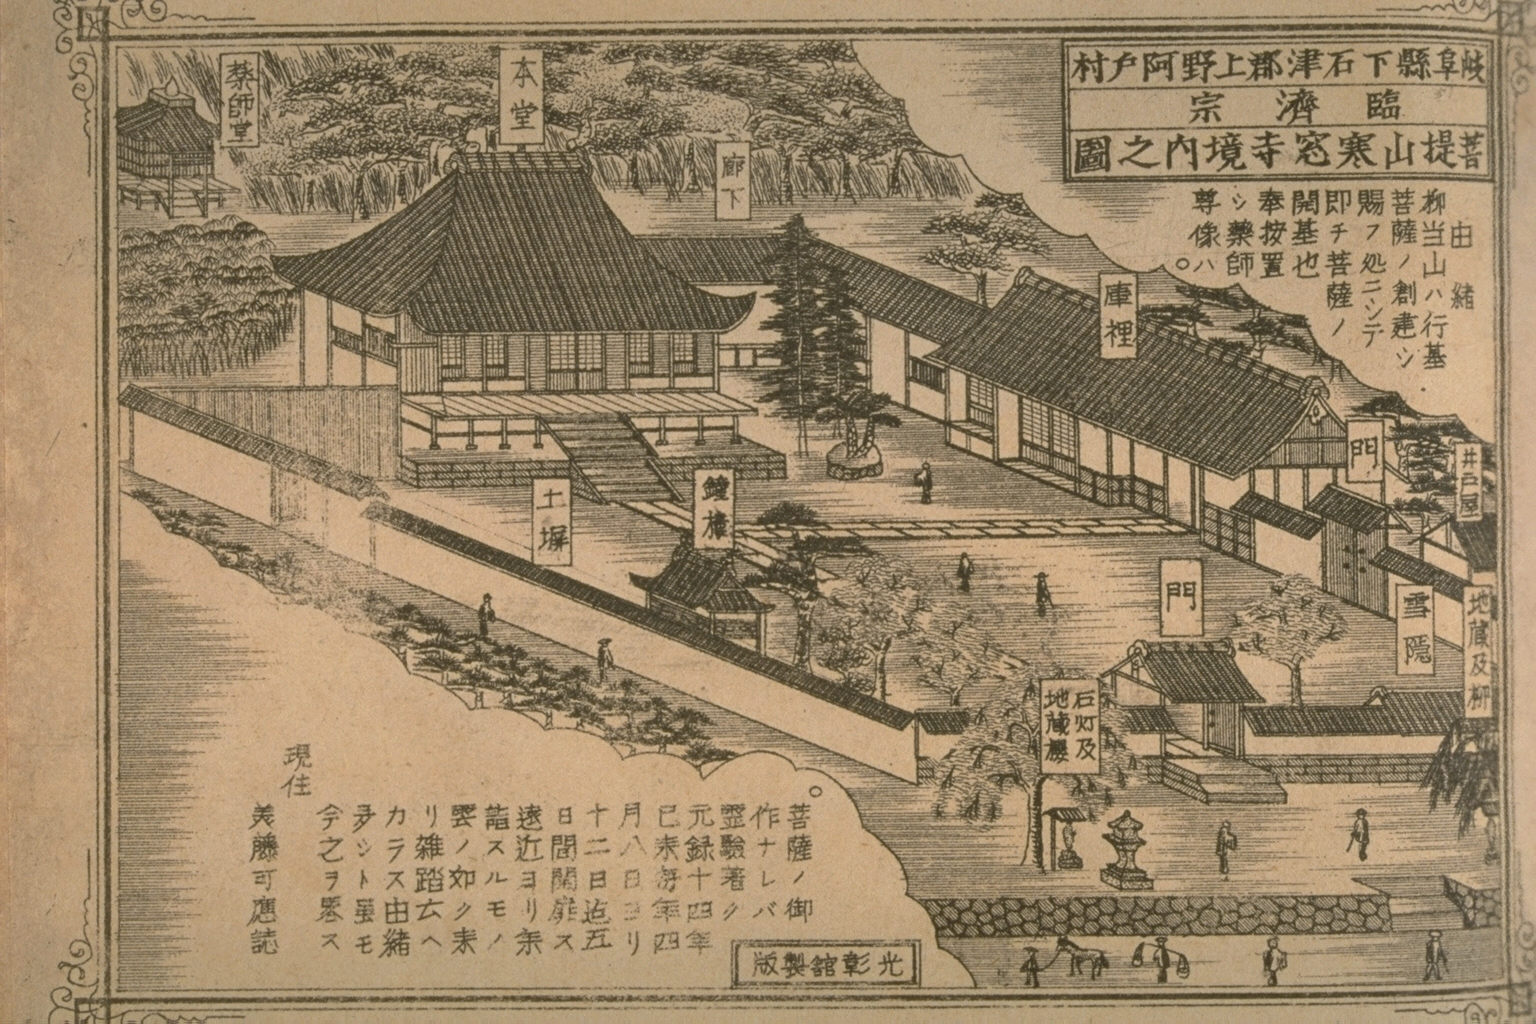 岐阜縣下石津郡上野阿戸村
臨濟宗
菩提山寒窓寺境内之圖
由緒
柳当山ハ行基
菩薩ノ創建シ
賜フ処ニシテ
即チ菩薩ノ
開基也
奉按置
シ藥師
尊像ハ
菩薩ノ御
作ナレバ
霊驗著ク
元録十四年
已来毎年四
月八日ヨリ
十二日迄五
日間開扉ス
遠近ヨリ参
詣スルモノ
雲ノ如ク来
リ雑踏云ヘ
カラス由緒
多シト虽モ
今之ヲ畧ス
現住
美藤可應誌
藥師堂
本堂
廊下
庫裡
門
井戸屋
土塀
鐘樓
門
雪隠
地蔵及柳
石灯及
地蔵櫻
光彰舘製版